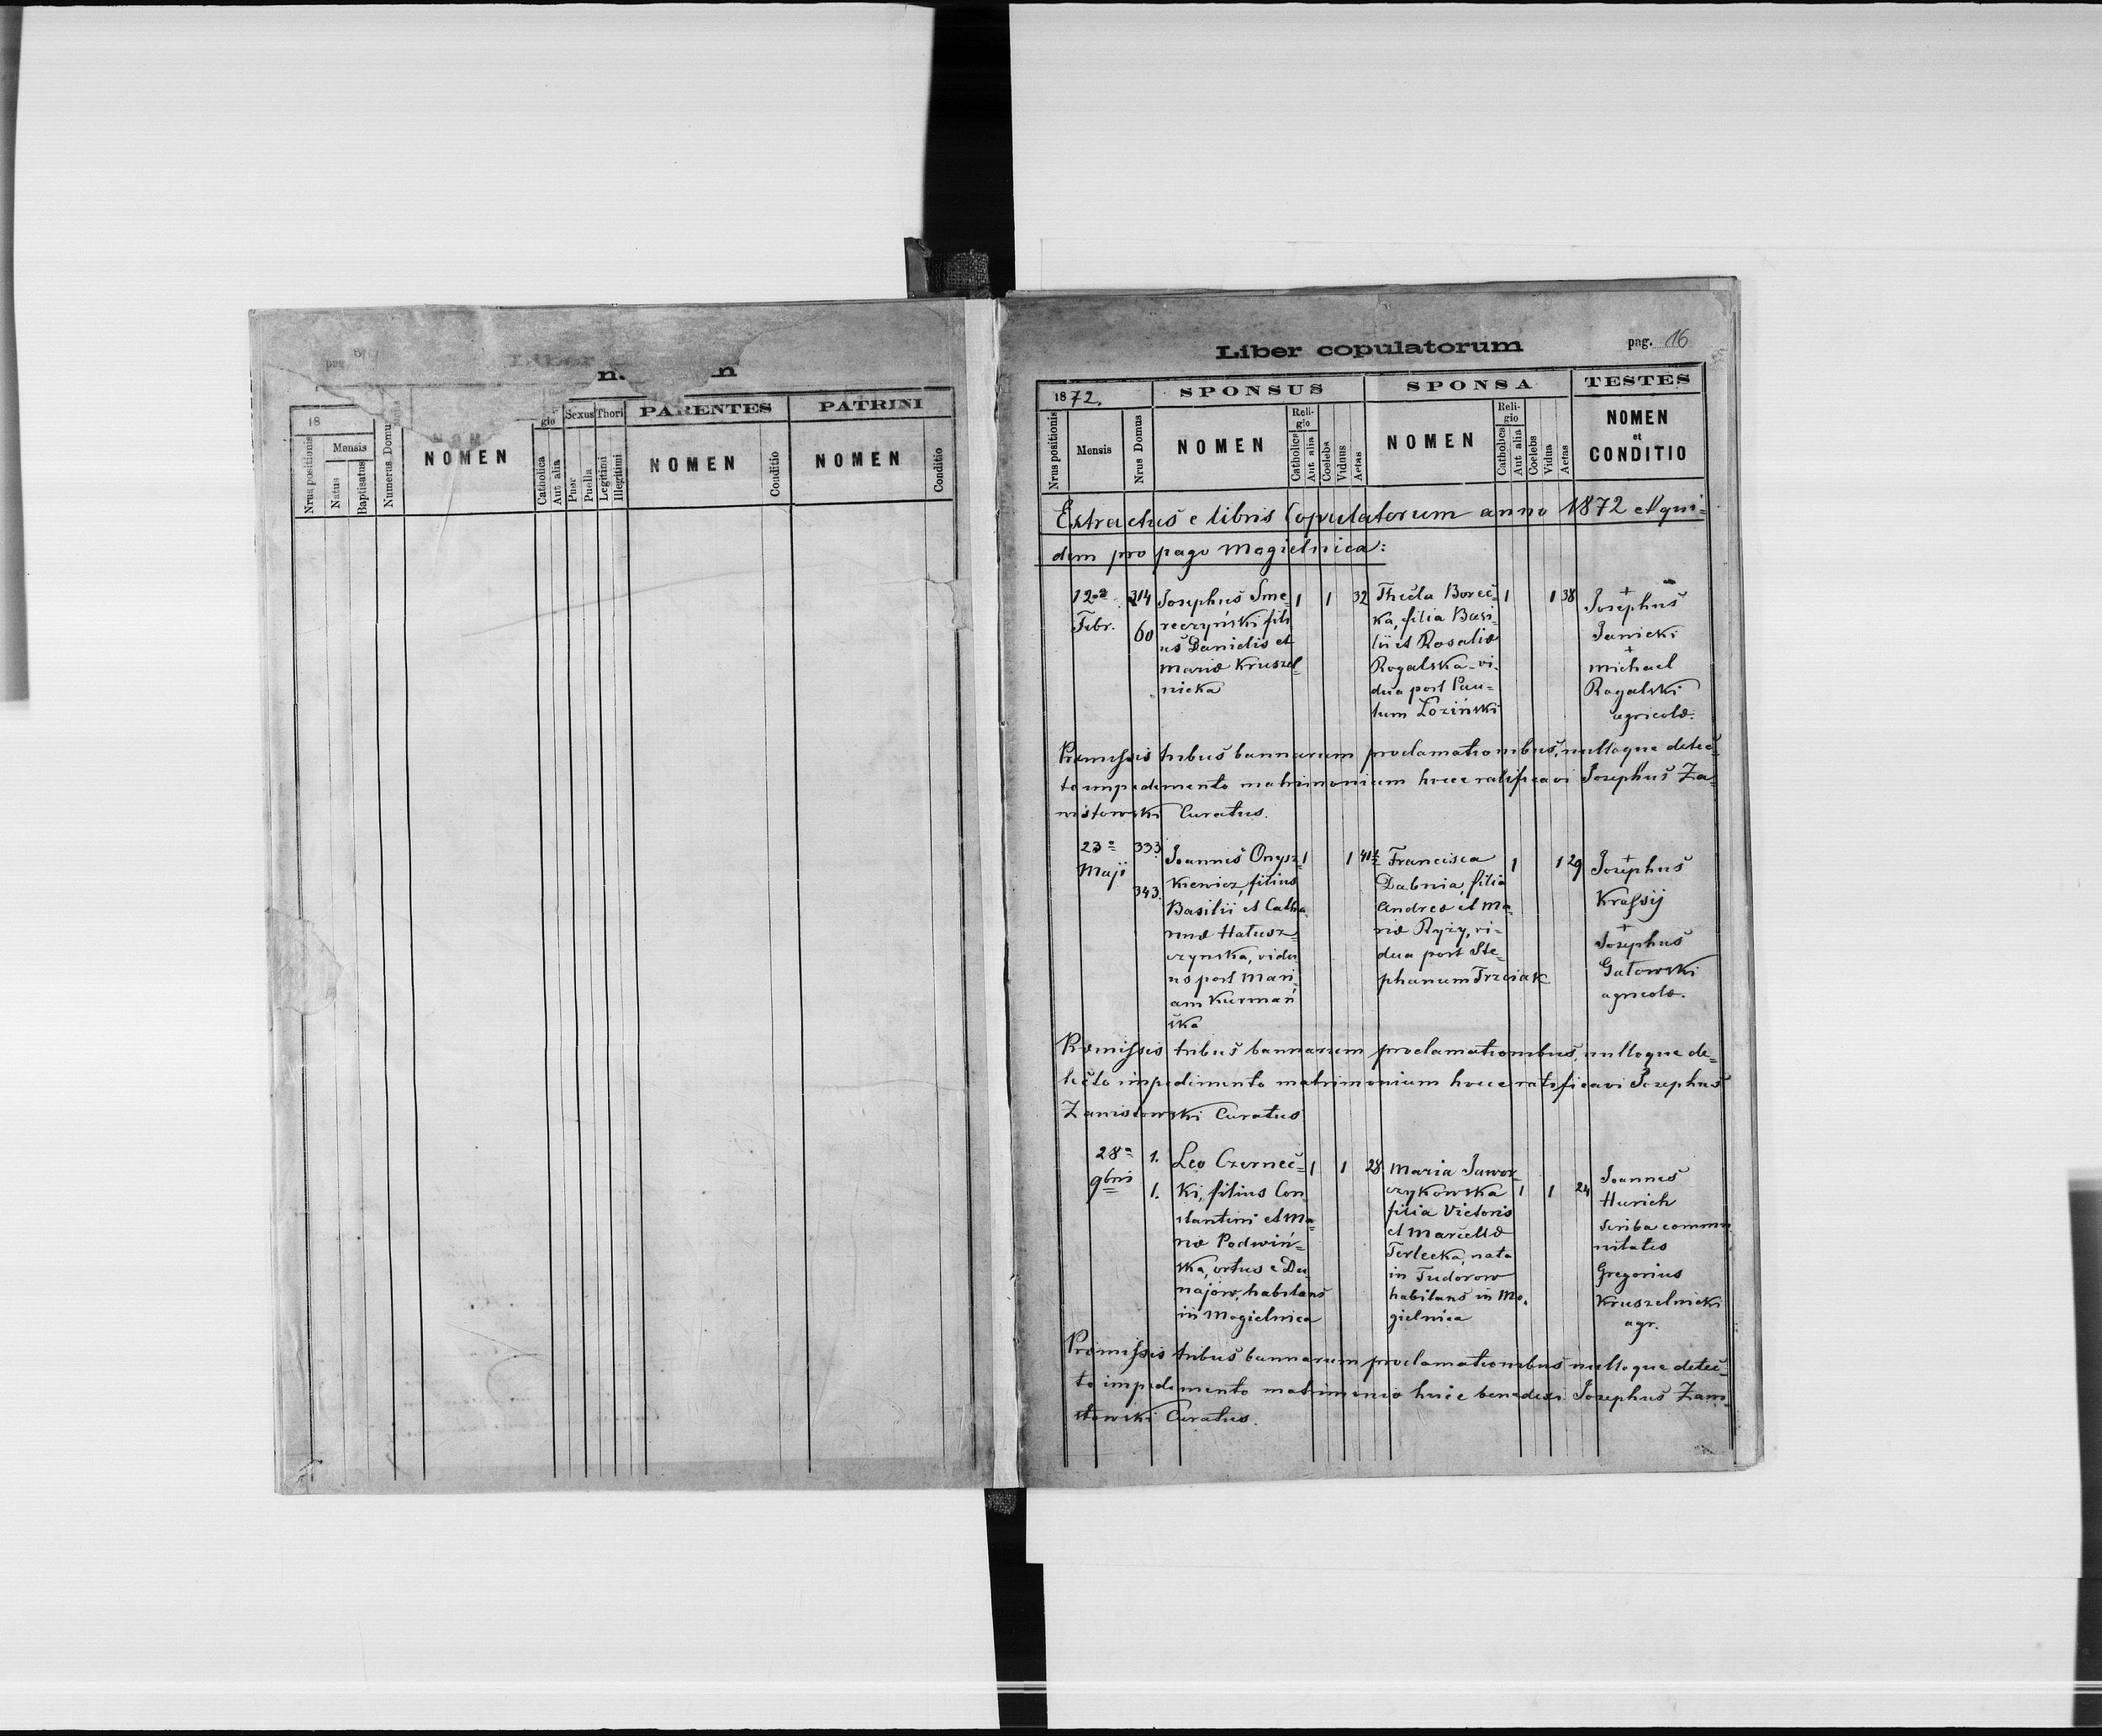 pag.
Liber
18
Nrus positionis
Mensis
Natus
Baptisatus
Numerus Domus
NOMEN
gio
Catholica
Aut alia
Sexus
Puer
Puella
Thori
Legitimi
Illegitimi
PARENTES
NOMEN
Conditio
PATRINI
NOMEN
Conditio
Liber copulatorum
pag. 16
1872.
Nrus positionis
Mensis
Nrus Domus
SPONSUS
NOMEN
Reli-
gio
Catholica
Aut alia
Coelebs
Viduus
Aetas
SPONSA
NOMEN
Reli-
gio
Catholica
Aut alia
Coelebs
Vidua
Aetas
TESTES
NOMEN
et
CONDITIO
Extractus e libris Copulatorum anno 1872 et qui=
dem pro pago Mogielnica:
12a
Febr.
314
60
Josephus Sme=
reczyński fili
us Danielis et
Mariæ Kruszel=
nicka
1 1 32
Thecla Borec=
ka, filia Basi=
lii et Rosaliæ
Rogalska vi-
dua post Pau=
lum Łoziński
1 1 38
+
Josephus
Janicki
+
Michael
Rogalski
agricolæ.
Præmissis tribus bannarum proclamationibus, nulloque detec=
to impedimento matrimonium hocce ratificavi Josephus Za=
wistowski Curatus.
23a
Maji
333
343.
Joannes Onysz=
kiewicz, filius
Basilii et Catha=
rinæ Hałusz=
czynska, vidu=
us post Mari=
am Kurmań
ska
1 1 41½
Francisca
Dabnia, filia
Andreæ et Ma=
riæ Ryży, vi=
dua post Ste=
phanum Trzciak
1 1 29
+
Josephus
Krassij
+
Josephus
Gałowski
agricolæ.
Præmissis tribus bannarum proclamationibus, nulloque de=
tecto impedimento matrimonium hocce ratificavi Josephus
Zawistowski Curatus
28a
9bris
1.
1.
Leo Czernec=
ki, filius Con
stantini et Ma=
riæ Podwiń=
ska, ortus e Du
najow, habitans
in Mogielnica
1 1 28
Maria Jawor
czykowska
filia Victoris
et Marcellæ
Terlecka, nata
in Tudorow
habitans in Mo=
gielnica
1 1 24
Joannes
Hurich
scriba commu
nitatis
Gregorius
Kruszelnicki
agr.
Præmissis tribus bannarum proclamationibus nulloque detec=
to impedimento matrimonio huic benedixi Josephus Zawi=
stowski Curatus.